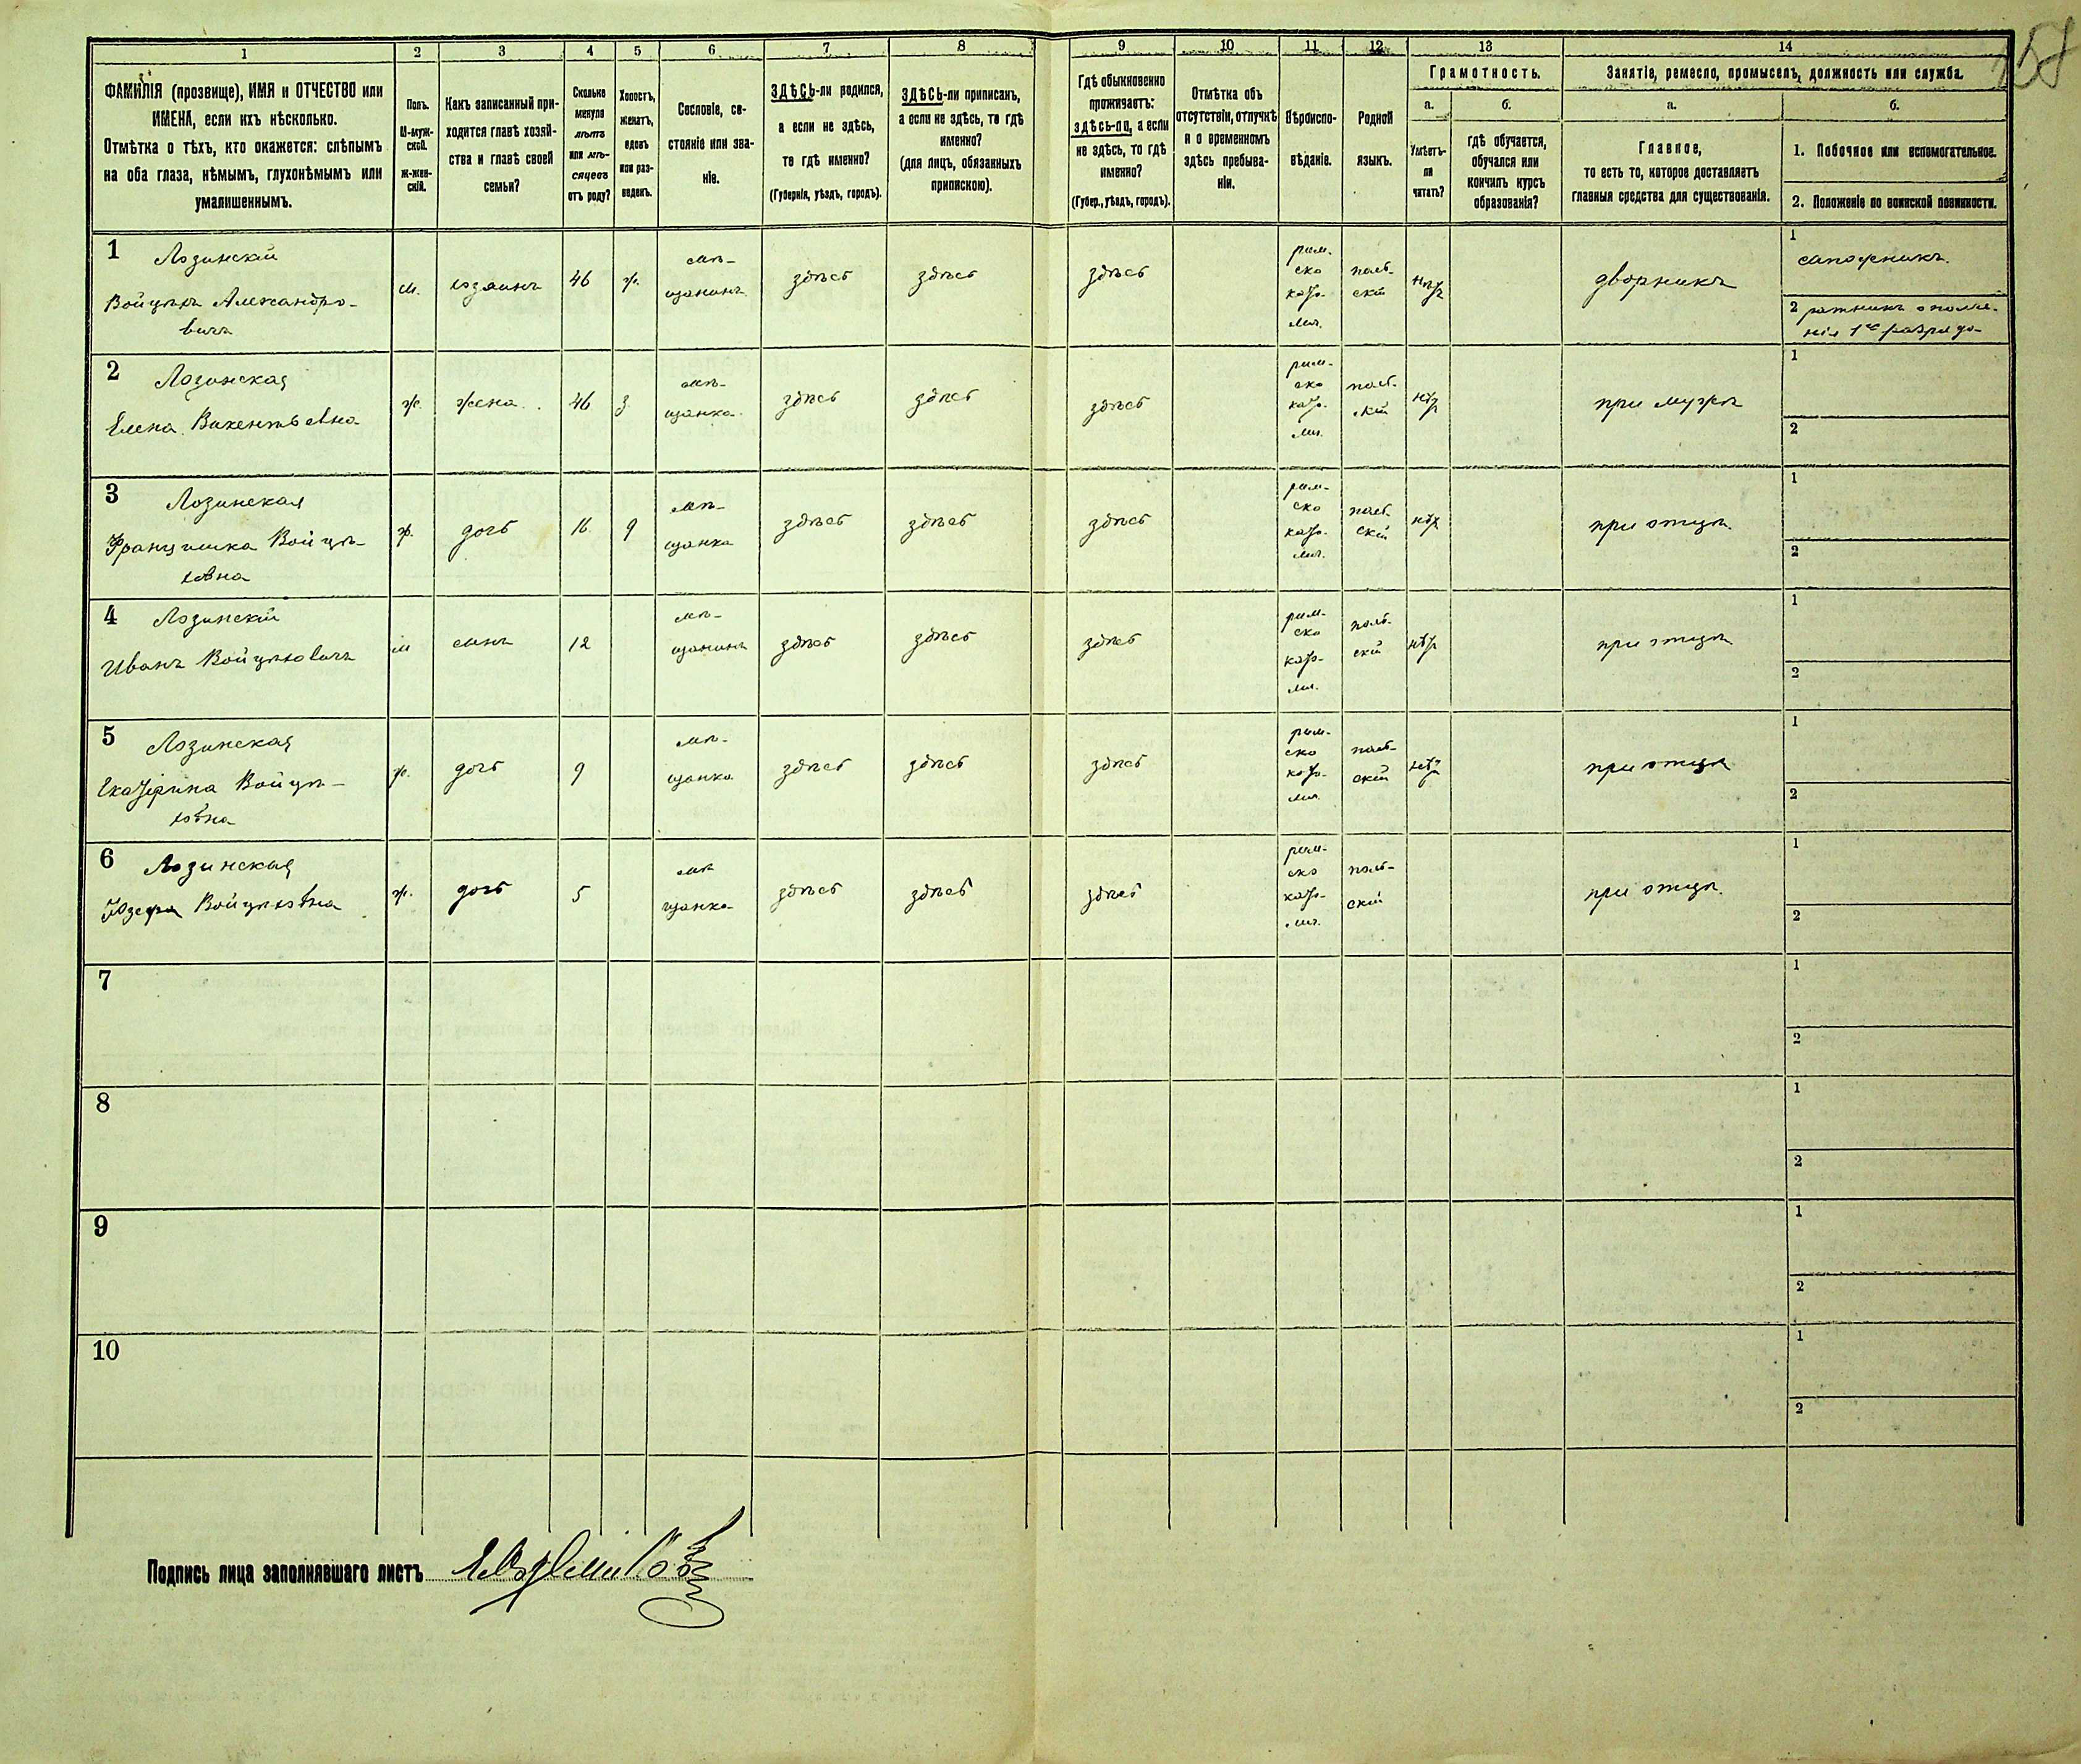 158
1 2 3 4 5 6 7 8 9 10 11 12 13 14
ФАМИЛІЯ (прозвище), ИМЯ и ОТЧЕСТВО или
ИМЕНА, если ихъ нѣсколько.
Отмѣтка о тѣхъ, кто окажется: слѣпымъ
на оба глаза, нѣмымъ, глухонѣмымъ или
умалишеннымъ.
Полъ.
М-муж-
ской.
Ж-жен-
скій.
Какъ записанный при-
ходится главѣ хозяй-
ства и главѣ своей
семьи?
Сколько
минуло
лѣтъ
или мѣ-
сяцевъ
отъ роду?
Холостъ,
женатъ,
вдовъ
или раз-
веденъ.
Сословіе, со-
стояніе или зва-
ніе.
ЗДѢСЬ-ли родился,
а если не здѣсь,
то гдѣ именно?
(Губернія, уѣздъ, городъ).
ЗДѢСЬ-ли приписанъ,
а если не здѣсь, то гдѣ
именно?
(для лицъ, обязанныхъ
припискою).
Гдѣ обыкновенно
проживаетъ:
здѣсь-ли, а если
не здѣсь, то гдѣ
именно?
(Губер., уѣздъ, городъ).
Отмѣтка объ
отсутствіи, отлучкѣ
и о временномъ
здѣсь пребыва-
ніи.
Вѣроиспо-
вѣданіе.
Родной
языкъ.
Грамотность.
а.
Умѣетъ-
ли
читать?
б.
Гдѣ обучается,
обучался или
кончилъ курсъ
образованія?
Занятіе, ремесло, промыселъ, должность или служба.
а.
Главное,
то есть то, которое доставляетъ
главныя средства для существованія.
б.
1. Побочное или вспомогательное.
2. Положеніе по воинской повинности.
1 Лозинскій
Войцѣхъ Александро-
вичъ
м.
хозяинъ
46
ж.
мѣ-
щанинъ
здѣсь
здѣсь
здѣсь
рим-
ско
като-
лич.
поль-
скій
нѣтъ
дворникъ
1
сапожникъ.
2 ратникъ ополче-
нія 1го разряда
2 Лозинская
Елена Викентьевна
ж.
жена
46
з
мѣ-
щанка
здѣсь
здѣсь
здѣсь
рим-
ско
като-
лич.
поль-
скій
нѣтъ
при мужѣ
1
2
3 Лозинская
Францишка Войцѣ-
ховна
ж.
дочь
16
д
мѣ-
щанка
здѣсь
здѣсь
здѣсь
рим-
ско
като-
лич.
поль-
скій
нѣтъ
при отцѣ
1
2
4 Лозинскій
Иванъ Войцѣховичъ
м
сынъ
12
мѣ-
щанинъ
здѣсь
здѣсь
здѣсь
рим-
ско
като-
лич.
поль-
скій
нѣтъ
при отцѣ
1
2
5 Лозинская
Екатерина Войцѣ-
ховна
ж.
дочь
9
мѣ-
щанка
здѣсь
здѣсь
здѣсь
рим-
ско
като-
лич.
поль-
скій
нѣтъ
при отцѣ
1
2
6 Лозинская
Юзефа Войцѣховна
ж.
дочь
5
мѣ
щанка
здѣсь
здѣсь
здѣсь
рим-
ско
като-
лич.
поль-
скій
при отцѣ.
1
2
7
1
2
8
1
2
9
1
2
10
1
2
Подпись лица заполнявшаго листъ